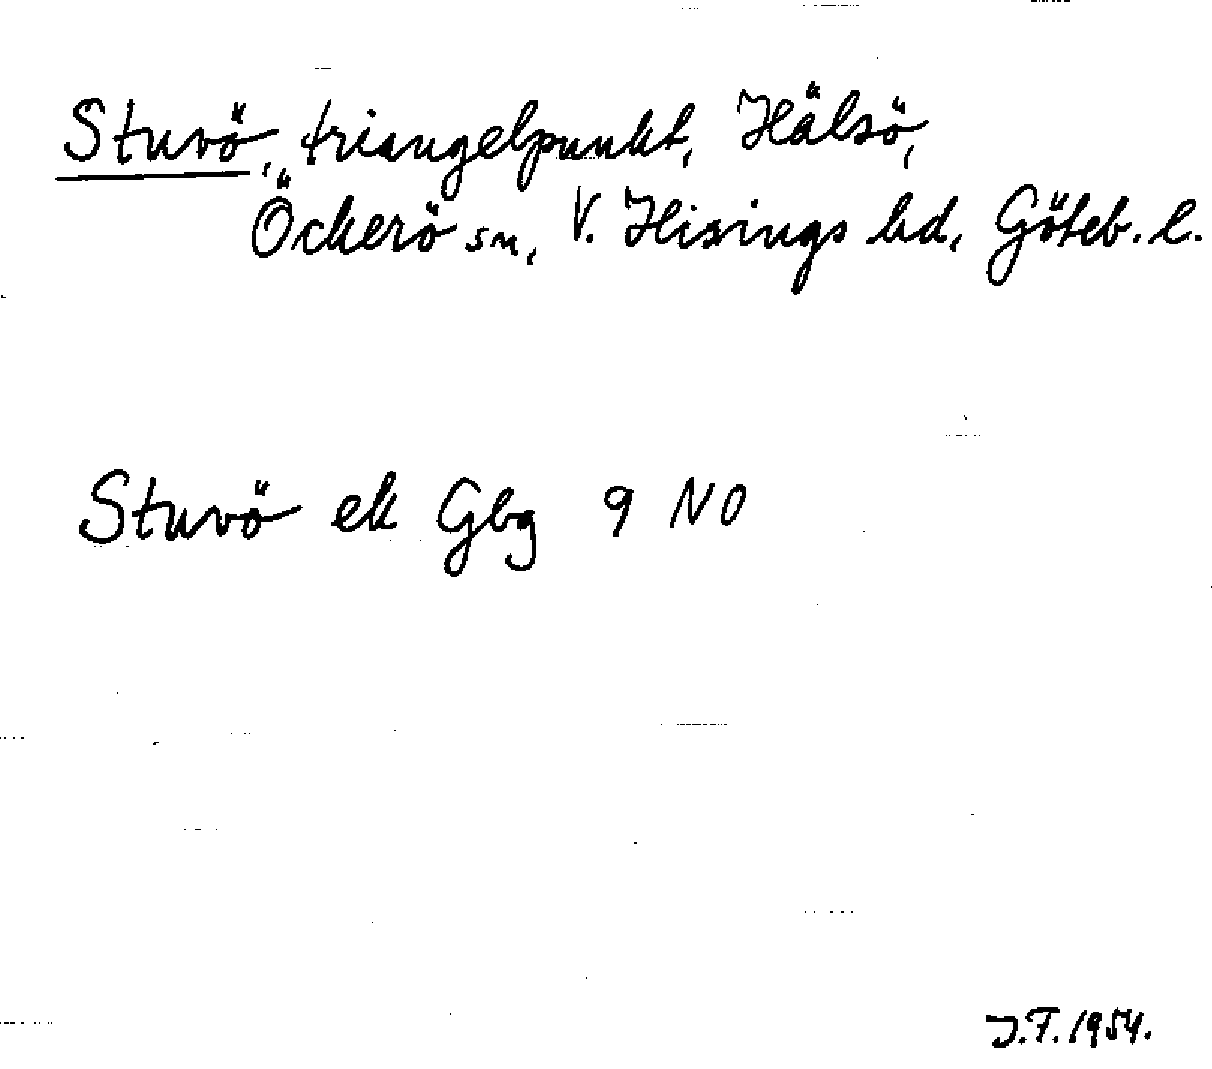 Stuvö, triangelpunkt, Hälsö,
Öckerö sn, V. Hisings hd, Göteb. l.
Stuvö ek Gbg 9 NO
J.F. 1954.